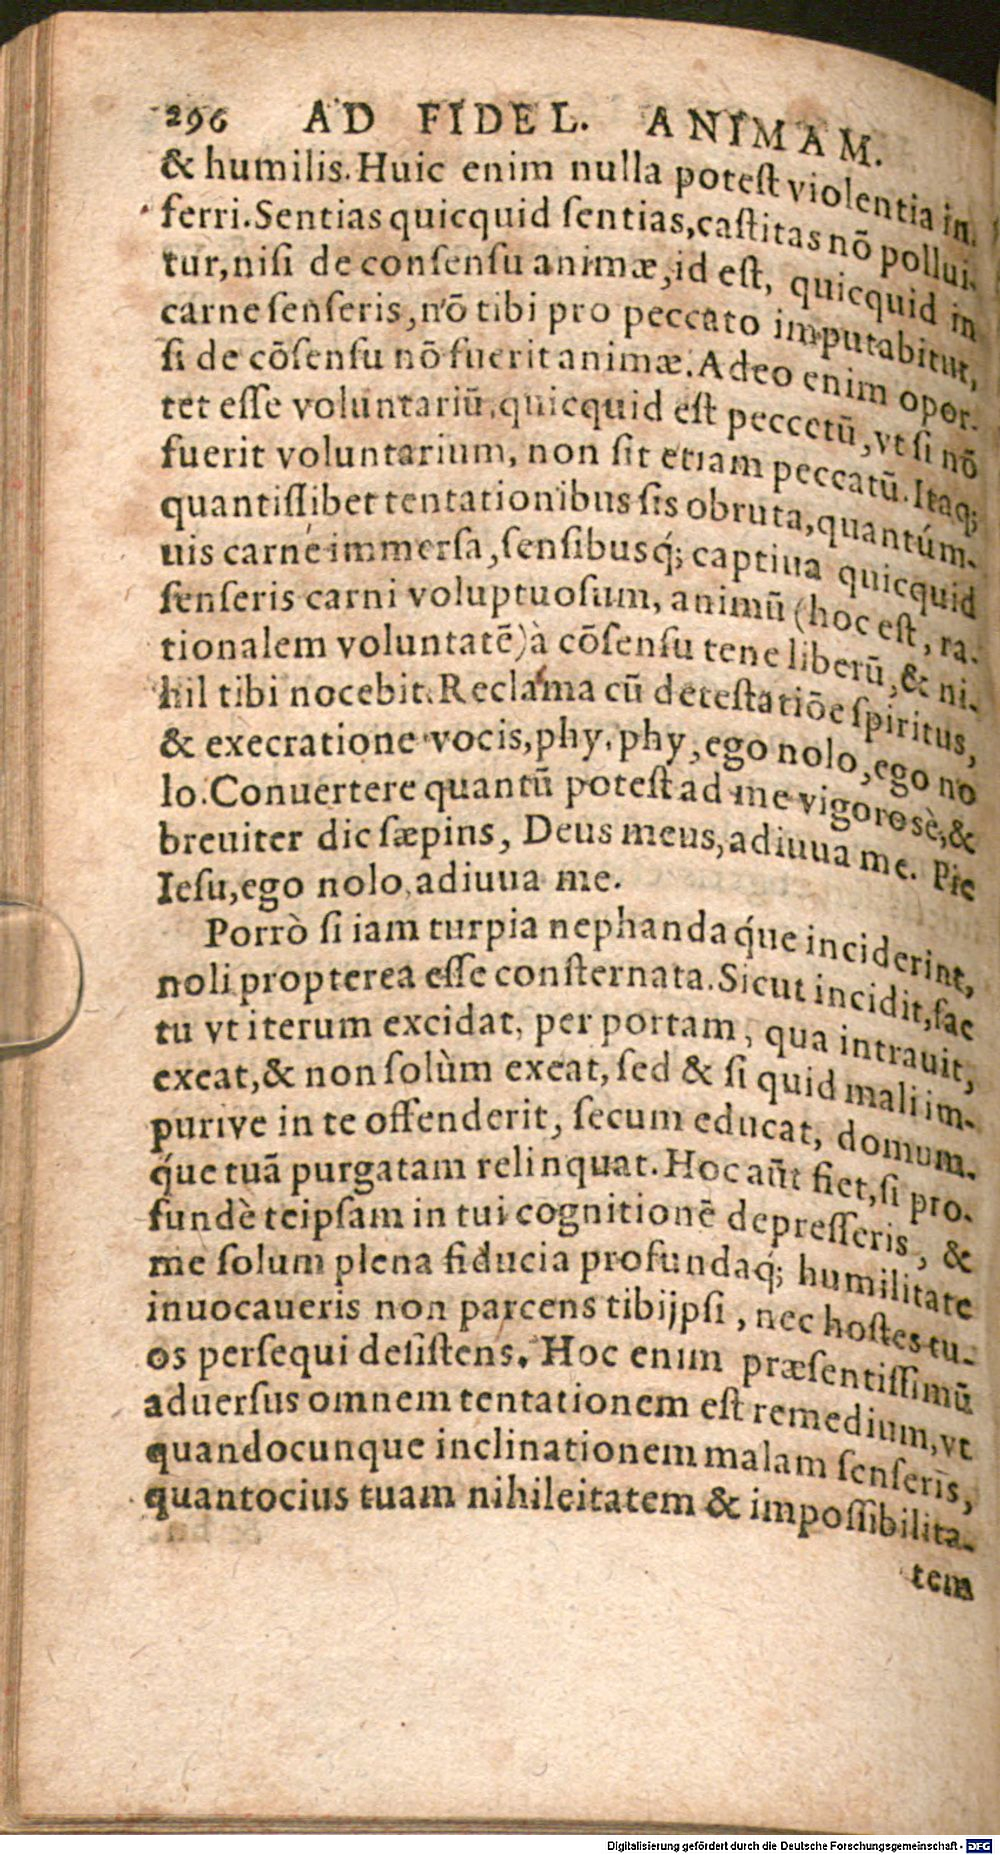 296 AD FIDEL. ANIMAM.
& humilis. Huic enim nulla poteſt violentia in-
ferri. Sentias quicquid ſentias, caſtitas nō pollui-
tur, niſi de conſenſu animæ, id eſt, quicquid in
carne ſenſeris, nō tibi pro peccato imputabitur,
ſi de cōſenſu nō fuerit animæ. Adeo enim opor-
tet eſſe voluntariū, quicquid eſt peccetū, vt ſi nō
fuerit voluntarium, non ſit etiam peccatū. Itaq;
quantiſlibet tentationibus ſis obruta, quantúm-
uis carne immerſa, ſenſibusq́; captiua quicquid
ſenſeris carni voluptuoſum, animū (hoc eſt, ra-
tionalem voluntatē) à cōſenſu tene liberū, & ni-
hil tibi nocebit. Reclama cū deteſtatiōe ſpiritus,
& execratione vocis, phy, phy, ego nolo, ego no
lo. Conuertere quantū poteſt ad me vigorosè, &
breuiter dic ſæpins, Deus meus, adiuua me. Pie
Ieſu, ego nolo, adiuua me.
Porrò ſi iam turpia nephandaq́ue inciderint,
noli propterea eſſe conſternata. Sicut incidit, fac
tu vt iterum excidat, per portam, qua intrauit,
exeat, & non ſolùm exeat, ſed & ſi quid mali im-
purive in te offenderit, ſecum educat, domum-
q́ue tuā purgatam relinquat. Hoc aūt fiet, ſi pro-
fundè teipſam in tui cognitionē depreſſeris, &
me ſolum plena fiducia profundaq́; humilitate
inuocaueris non parcens tibijpſi, nec hoſtes tu-
os perſequi deſiſtens. Hoc enim præſentiſſimū
aduerſus omnem tentationem eſt remedium, vt
quandocunque inclinationem malam ſenſeris,
quantocius tuam nihileitatem & impoſſibilita-
tem
Digitalisierung gefördert durch die Deutsche Forschungsgemeinschaft - DFG